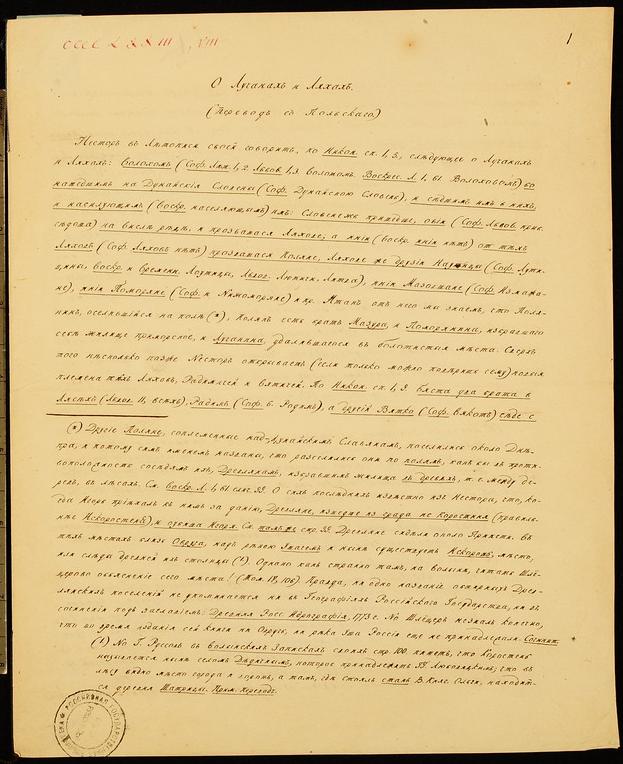 1
О Лучанахъ и Ляхахъ.
(Переводъ съ Польскаго)
Несторъ въ Лѣтописи своей говоритъ, по Никон. сп. 1, 5, слѣдующее о Лучанахъ
и Ляхахъ: Волохомъ (Соф. Лѣт. 1, 2 Львов. 1, 9 Волотомъ. Воскрес. Л. 1, 61. Волоховомъ) бо
нашедшимъ на Дунайскія Словены (Соф. Дунайскою Словены), и сѣдшимъ имъ в нихъ,
и насилующимъ (воскр. населяющымъ) имъ: Словенеже пришедше, овіи (Соф. Львов.
сѣдоша) на Вислѣ рѣцѣ, и прозвашася Ляхове; а иніи (воскр. иніи нѣтъ) от тѣхъ
Ляховъ (Соф. Ляховъ нѣтъ) прозвашася Поляне, Ляхове же друзіи (Соф. Лути
воскр. и Времени. Лютицы, Львов. Литва), иніи Мазовшане (Соф.
не), иніи Поморяне (Соф. и Поморяне) и пр. Итакъ от него мы знаемъ, что Поля-
нинъ, оселившійся на поляхъ (*), Полянъ есть братъ Мазура, и Поморянина, избравшаго
себѣ жилище приморское, и Лучанина, удалившагося въ болотистыя мѣста. Сверхъ
того нѣсколько позже Несторъ открываетъ (если только можно повѣрить сему) новыя
племена тѣхъ Ляховъ, Радимичей и Вятичей. По Никон. сп. 1, 9 бяста два брата в
Лясѣхъ (Львов. 11, всѣхъ), Радимъ (Соф. 6. Родимъ), а другій Вятко (Соф. Вякотъ) сѣде с
(*) Другіе Поляне, соплеменные над-Дунайскимъ Славянамъ, населились около Днѣ-
пра, и потому симъ именемъ названы, что разселились они по полямъ, какъ бы въ проти-
воположность сосѣдямъ ихъ, Древлянамъ, избравшимъ жилища въ древяхъ, т. е. между де-
ревъ, въ лѣсахъ. См. Воскр. Л. 1, 61. слич. 99. О сихъ послѣднихъ извѣстно изъ Нестора, что, ко-
гда Игорь пріѣхалъ къ нимъ за данію, Древляне, изшедше из града из Коростеня (правиль-
нѣе Искоростеня), и убиша Игоря. См. тамъ же стр. 99. Древляне сидѣли около Припети. Въ
тѣхъ мѣстахъ близь Овруча, надъ рѣкою и нынѣ существуетъ Искорость, мѣсто,
или слѣды древней ихъ столицы (1). Однако какъ странно тамъ, на Волыни, читать Шлё-
церово объясненіе сего мѣста! (Том. 18, 106). Правда, ни одно названіе Древ-
лянскихъ поселеній не упоминается ни въ Географіяхъ Россійскаго Государства, ни въ
сочиненіи подъ заглавіемъ: Древняя Росс. Идрографія, 1773 г. Но Шлёцеръ незналъ конечно,
что во время изданія сей книги ни Овручь, ни рѣка Уша Россіи еще не принадлежали. Сочинит.
(1) Но Г. Руссовъ въ Волынскихъ Запискахъ своихъ стр. 100. пишетъ, что Коростень
называется нынѣ селомъ, которое принадлежитъ ГГ. Любовицкимъ; что въ
лѣсу видно мѣсто города и горокъ, а тамъ, гдѣ стоялъ станъ В. Княг. Ольги, находит-
ся деревня Шатрищи. Прим. Перевод.